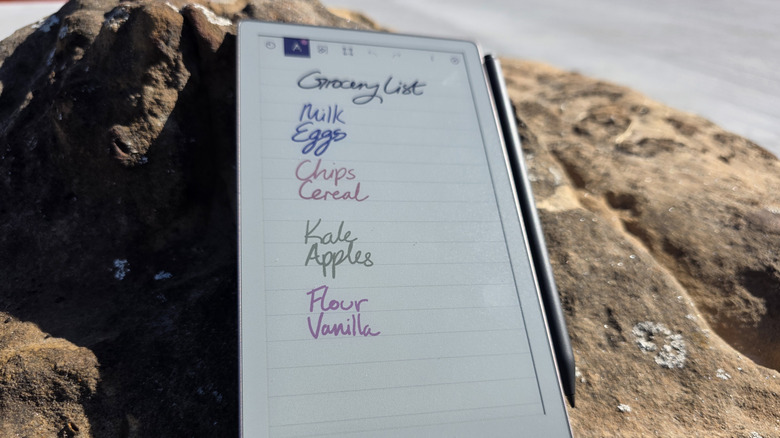 Grocery List
Milk
Eggs
Chips
Cereal
Kale
Apples
Flour
Vanilla